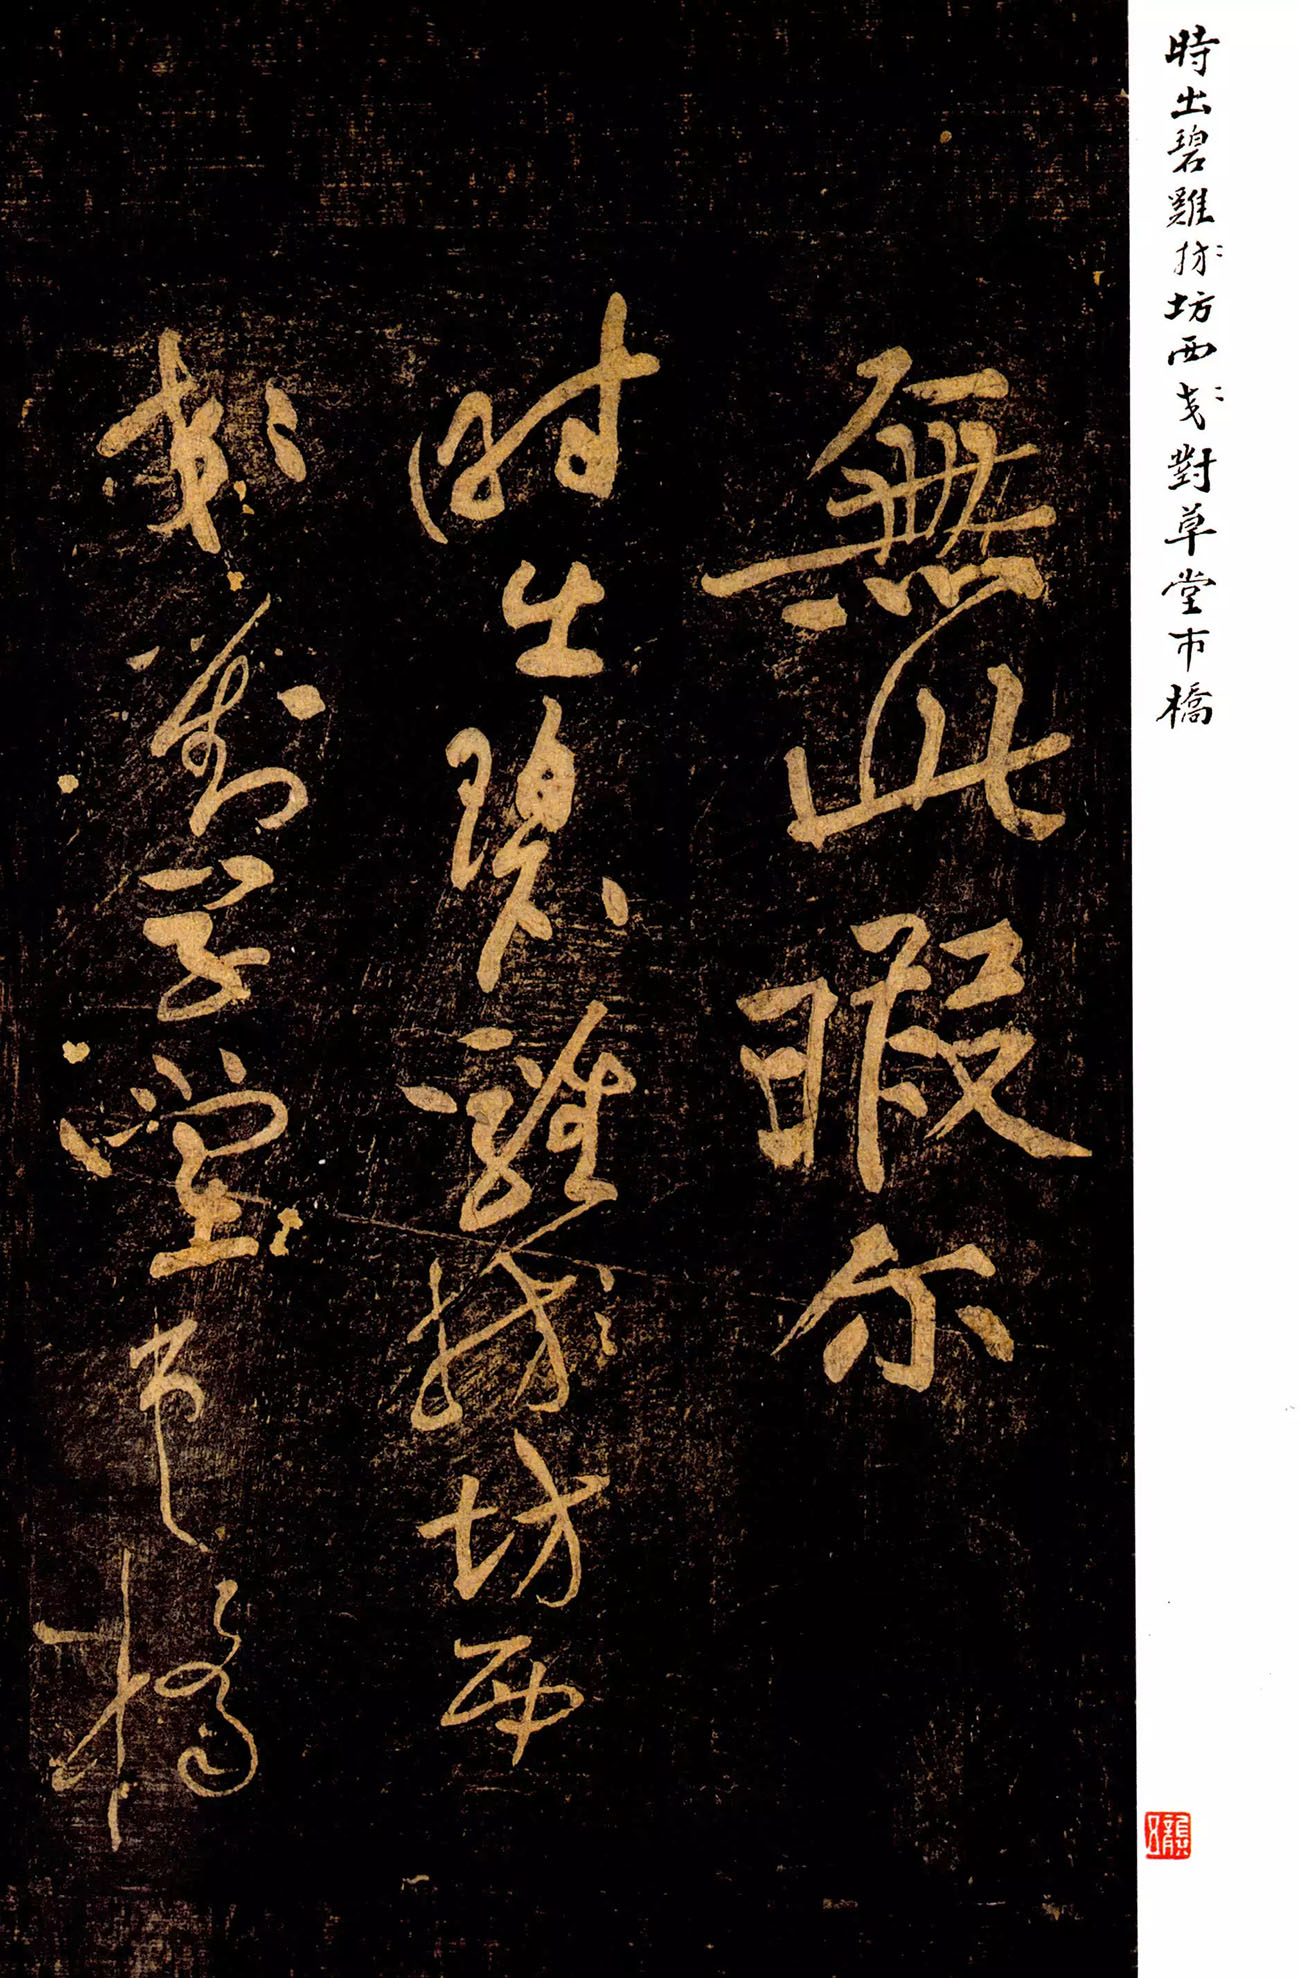 時出碧雞坊西對草堂市橋
無此暇尔
時出碧雞坊西
對草堂市橋